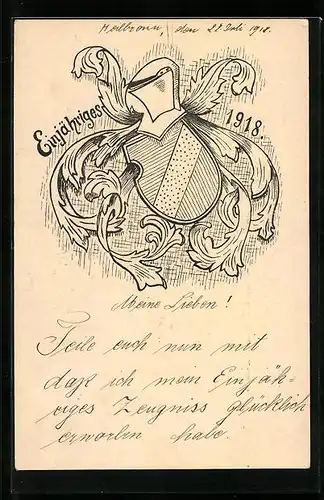 Heilbronn, den 28 Juli 1918.
Einjähriges
1918.
Meine Lieben!
Teile euch nun mit
daß ich mein Einjäh-
riges Zeugniss glücklich
erworben habe.